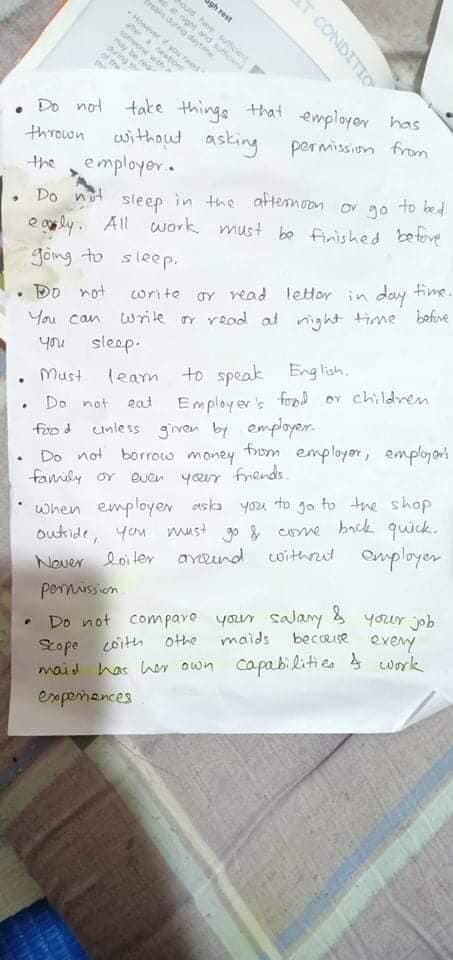 ugh rest
should have sufficient
at night and sufficient
breaks during daytime.
• However, if you need
after a newborn
someone with
may be req
during the
of the
IT CONDITIO
• Do not take things that employer has
thrown without asking permission from
the employer..
• Do not sleep in the afternoon or go to bed
early. All work must be finished before
going to sleep.
• Do not write or read letter in day time.
You can write or read at night time before
you sleep.
• Must learn to speak English.
• Do not eat Employer's food or children
food unless given by employer.
• Do not borrow money from employer, employer's
family or even your friends.
• When employer asks you to go to the shop
outside, you must go & come back quick.
Never loiter around without employer
permission.
• Do not compare your salary & your job
scope with othe maids because every
maid has her own capabilities & work
experiences